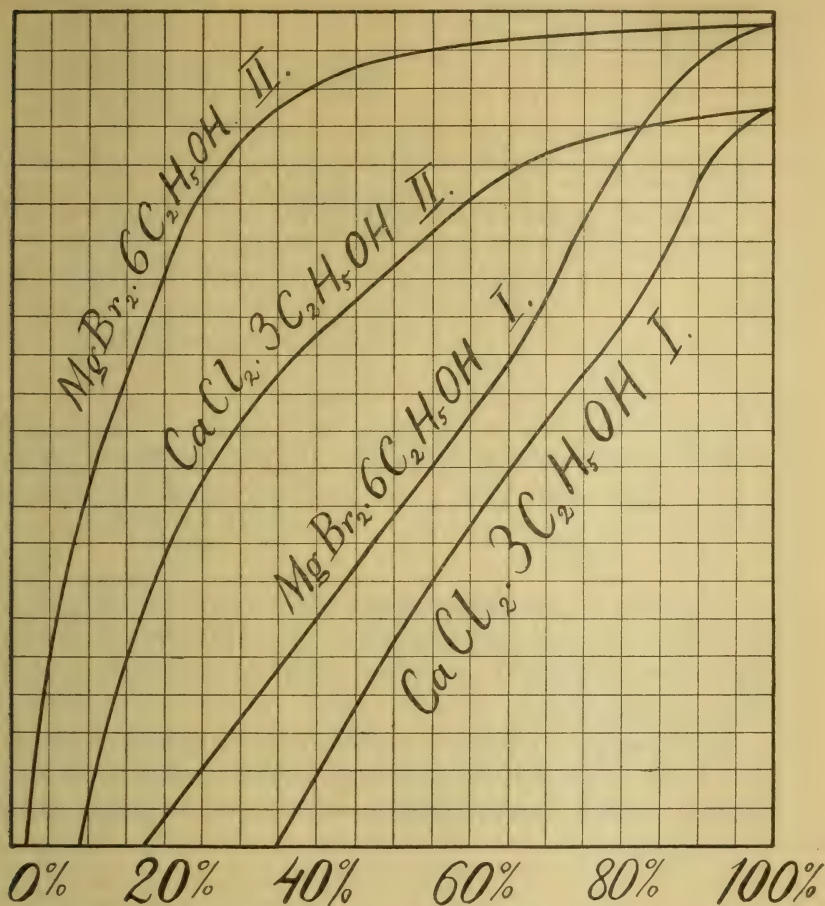 MgBr₂·6C₂H₅OH II.
CaCl₂·3C₂H₅OH II.
MgBr₂·6C₂H₅OH I.
CaCl₂·3C₂H₅OH I.
0% 20% 40% 60% 80% 100%